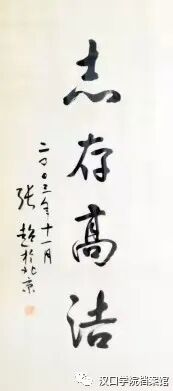 志存高洁
二〇〇三年十一月
张超於北京
汉口学院档案馆